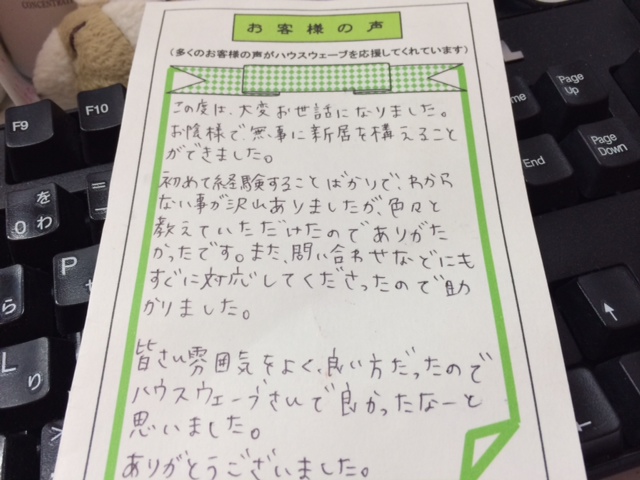 CONCENTRAT
お客様の声
(多くのお客様の声がハウスウェーブを応援してくれています)
この度は、大変お世話になりました。
お陰様で無事に新居を構えること
ができました。
初めて経験することばかりで、わから
ない事が沢山ありましたが、色々と
教えていただけたのでありがた
かったです。また、問い合わせなどにも
すぐに対応してくださったので助
かりました。
皆さん雰囲気をよく、良い方だったので
ハウスウェーブさんで良かったなーと
思いました。
ありがとうございました。
F9
F10
を
0 わ
P
ら
L
り
>
Page
Up
End
Page
Down
↑